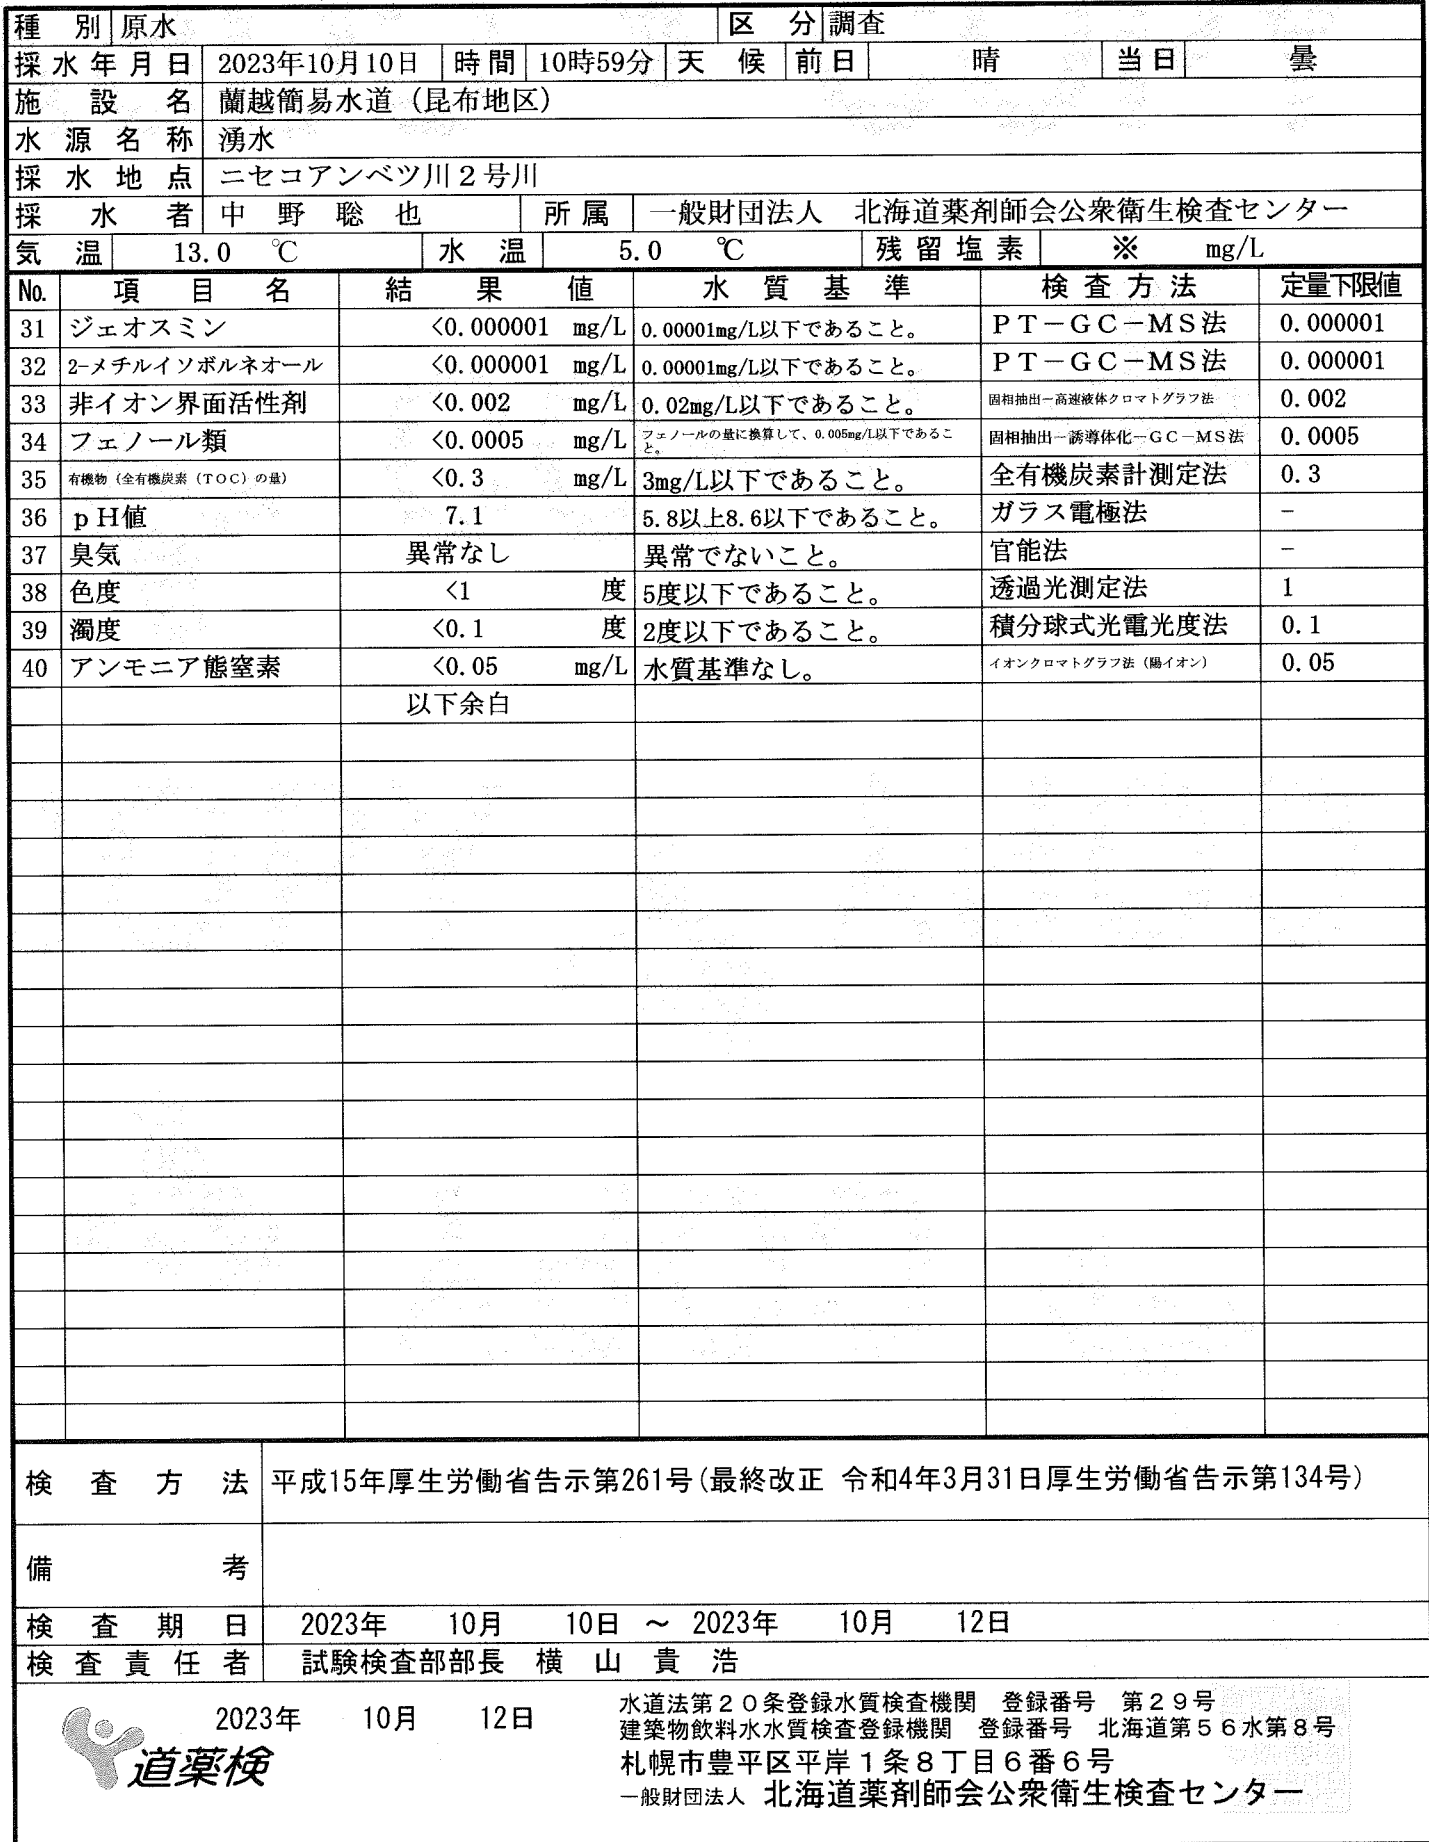 種 別 原水 区 分 調査
採水年月日 2023年10月10日 時間 10時59分 天 候 前日 晴 当日 曇
施 設 名 蘭越簡易水道（昆布地区）
水 源 名 称 湧水
採 水 地 点 ニセコアンベツ川２号川
採 水 者 中 野 聡 也 所属 一般財団法人 北海道薬剤師会公衆衛生検査センター
気 温 13.0 ℃ 水 温 5.0 ℃ 残留塩素 ※ mg/L
No. 項 目 名 結 果 値 水 質 基 準 検査方法 定量下限値
31 ジェオスミン <0.000001 mg/L 0.00001mg/L以下であること。 ＰＴ－ＧＣ－ＭＳ法 0.000001
32 2-メチルイソボルネオール <0.000001 mg/L 0.00001mg/L以下であること。 ＰＴ－ＧＣ－ＭＳ法 0.000001
33 非イオン界面活性剤 <0.002 mg/L 0.02mg/L以下であること。 固相抽出－高速液体クロマトグラフ法 0.002
34 フェノール類 <0.0005 mg/L フェノールの量に換算して、0.005mg/L以下であること。 固相抽出－誘導体化－ＧＣ－ＭＳ法 0.0005
35 有機物（全有機炭素（ＴＯＣ）の量） <0.3 mg/L 3mg/L以下であること。 全有機炭素計測定法 0.3
36 ｐＨ値 7.1 5.8以上8.6以下であること。 ガラス電極法 －
37 臭気 異常なし 異常でないこと。 官能法 －
38 色度 <1 度 5度以下であること。 透過光測定法 1
39 濁度 <0.1 度 2度以下であること。 積分球式光電光度法 0.1
40 アンモニア態窒素 <0.05 mg/L 水質基準なし。 イオンクロマトグラフ法（陽イオン） 0.05
以下余白
検 査 方 法 平成15年厚生労働省告示第261号(最終改正 令和4年3月31日厚生労働省告示第134号)
備 考
検 査 期 日 2023年 10月 10日 ～ 2023年 10月 12日
検 査 責 任 者 試験検査部部長 横 山 貴 浩
2023年 10月 12日
道薬検
水道法第２０条登録水質検査機関 登録番号 第２９号
建築物飲料水水質検査登録機関 登録番号 北海道第５６水第８号
札幌市豊平区平岸１条８丁目６番６号
一般財団法人 北海道薬剤師会公衆衛生検査センター